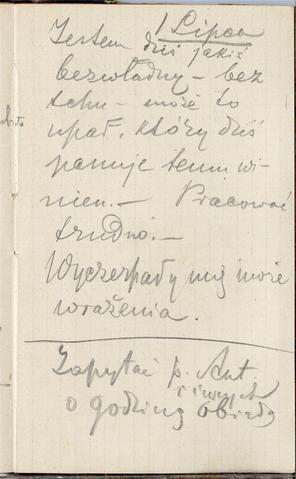 1 Lipca
Jestem dziś jakiś
bezwładny – bez
tchu – może to
upał, który dziś
panuje temu wi-
nien. – Pracować
trudno. –
Wyczerpały mię może
wrażenia.
Zapytać p. Ant.
i innych
o godzinę obiadu